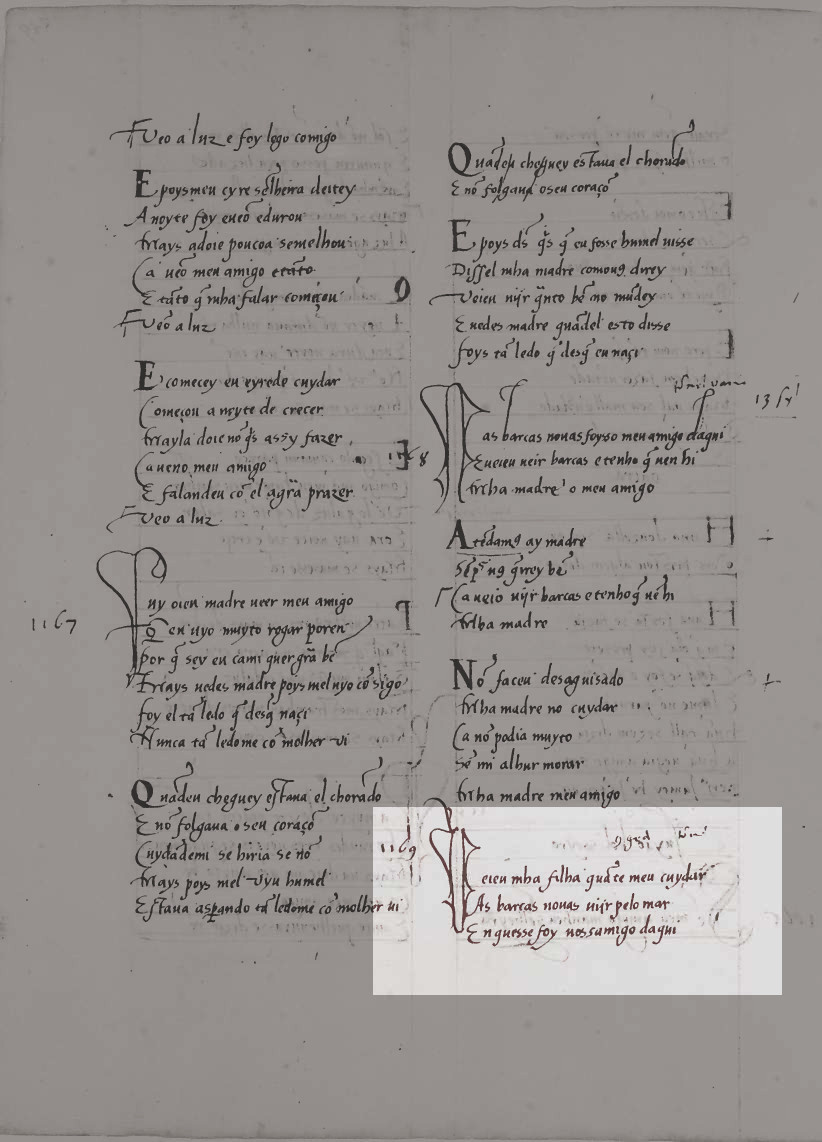 Tveo a luz e foy logo comigo
E poys meu cyre senlheira deitey
A noyte foy eueō edurou
Mays adoie poucoa semelhou
Ca ueō meu amigo etāto
E tāto q̄ mha falar começou
Tveō a luz
E comecey eu eyrede cuydar
Começou a noyte de crecer
Mayla doie nō q̄s assy fazer
Ca ueno meu amigo
E falandeu cō el agrā prazer
Tveo a luz
1167
Muy oieu madre ueer meu amigo
Q̄ en uyo muyto rogar poren
Por q̄ sey eu cami quer grā bē
Mays uedes madre poys mel uyo cōsigo
foy el tā ledo q̄ desq̄ naçi
Nunca tā ledome cō molher vi
Quādeu cheguey estaua el chorādo
E nō folgaua o seu coraçō
Cuydādemi se hiria se nō
Mays poys mel vyu humel
Estaua asperando tā ledome cō molher ui
Quādeu cheguey estaua el chorādo
E nō folgaua o seu coraçō
E poys ds q̄s q̄ eu fosse humel uisse
Dissel mha madre comou9 direy
Veieu uijr q̄nto bē no mūdey
E uedes madre quādel esto disse
foys tā ledo q̄ desq̄ eu naçi
1168
As barcas nouas foyso meu amigo daqui
E ueieu ueir barcas e tenho q̄ uen hi
Mha madre o meu amigo
Atēdam9 ay madre
Sēpr u9 q̄rrey bē
Ca ueio uijr barcas e tenho q̄ uē hi
Mha madre
Nō faceu desaguisado
Mha madre no cuydar
Ca nō podia muyto
Sē mi alhur morar
Mha madre meu amigo
1169
Veieu mha filha quāte meu cuydar
As barcas nouas uijr pelo mar
En quesse foy uossamigo daqui